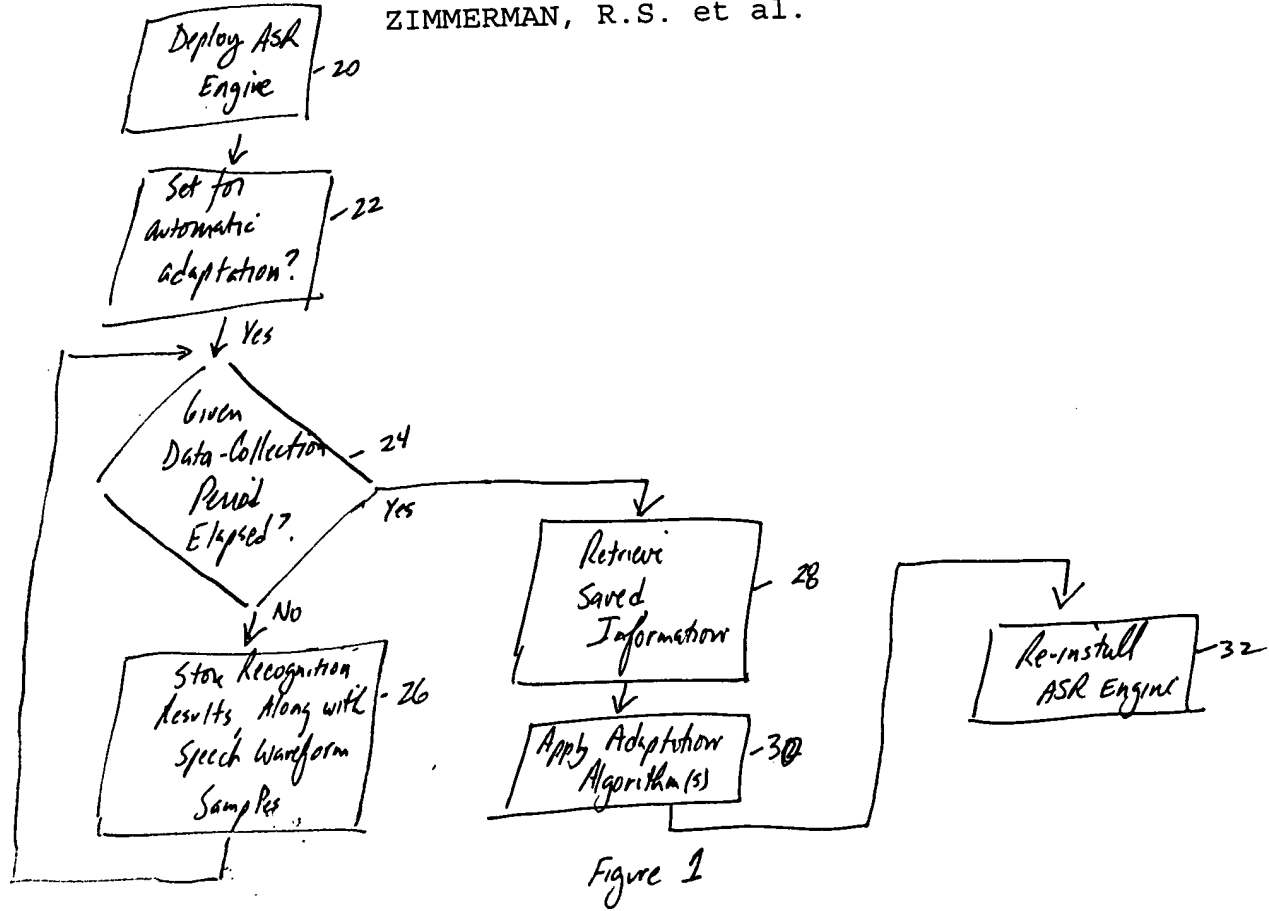 ZIMMERMAN, R.S. et al.
Deploy ASR
Engine
20
Set for
automatic
adaptation?
22
Yes
Given
Data-Collection
Period
Elapsed?
24
Yes
No
Store Recognition
Results, Along with
Speech Waveform
Samples
26
Retrieve
Saved
Information
28
Apply Adaptation
Algorithm(s)
30
Re-install
ASR Engine
32
Figure 1